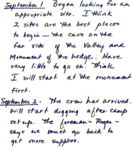 September 1. Began looking for an
appropriate site. I think
2 sites are the best places
to begin - the cave on the
far side of the Valley and
Monument at the hedge. Have
very little to go on. Think
I will start at the monument
first.
September 2. The crew has arrived.
Will start digging after camp
set up. The foreman - Roger -
says we must go back to
get more supplies.